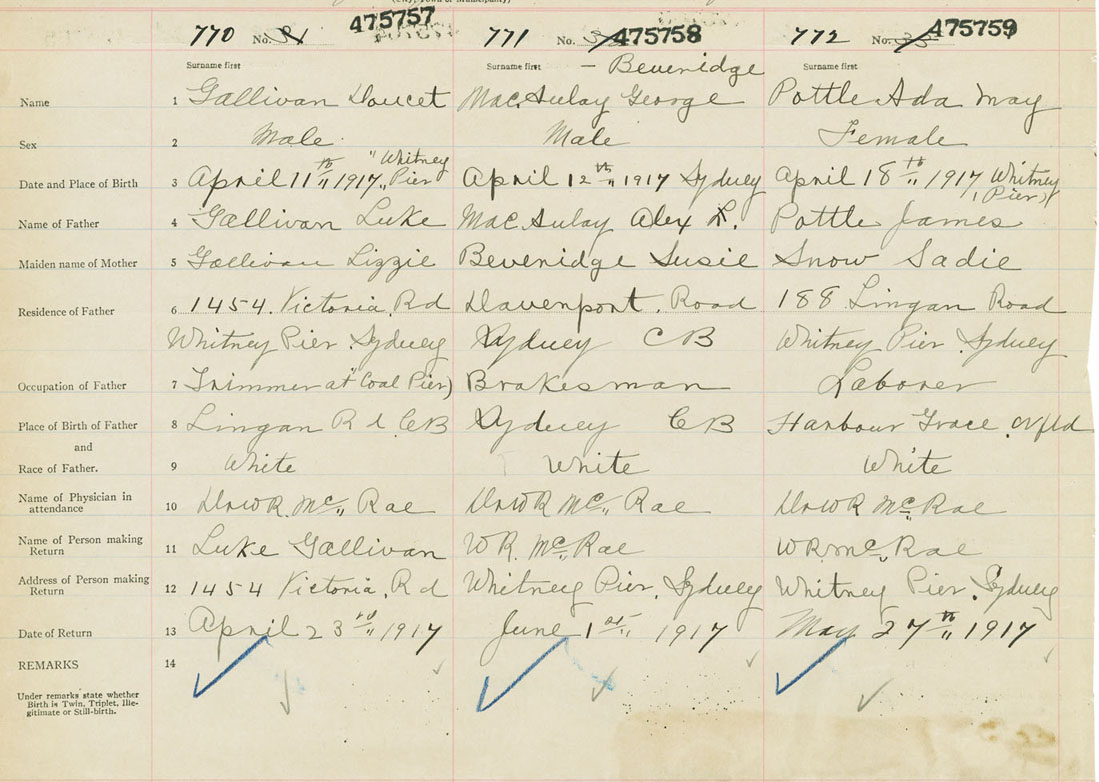 (City, Town or Municipality)
475757 475758 475759
770 No. 771 No. 772 No.
Surname first Surname first - Beveridge Surname first
Name 1 Gallivan Doucet MacAulay George Pottle Ada May
Sex 2 Male Male Female
Date and Place of Birth 3 April 11th 1917 " Whitney Pier April 12th 1917 Sydney April 18th 1917 Whitney (Pier)
Name of Father 4 Gallivan Luke MacAulay Alex D. Pottle James
Maiden name of Mother 5 Gallivan Lizzie Beveridge Susie Snow Sadie
Residence of Father 6 1454 Victoria Rd Davenport Road 188 Lingan Road
Whitney Pier Sydney Sydney C B Whitney Pier Sydney
Occupation of Father 7 Trimmer at Coal Pier) Brakesman Laborer
Place of Birth of Father 8 Lingan Rd CB Sydney CB Harbour Grace Nfld
and
Race of Father. 9 White White White
Name of Physician in
attendance 10 Dr W R. Mc Rae Dr W R Mc Rae Dr W R Mc Rae
Name of Person making
Return 11 Luke Gallivan W R. Mc Rae W R Mc Rae
Address of Person making
Return 12 1454 Victoria, Rd Whitney Pier, Sydney Whitney Pier, Sydney
Date of Return 13 April 23rd 1917 June 1st 1917 May 27th 1917
REMARKS 14
Under remarks state whether
Birth is Twin, Triplet, Ille-
gitimate or Still-birth.